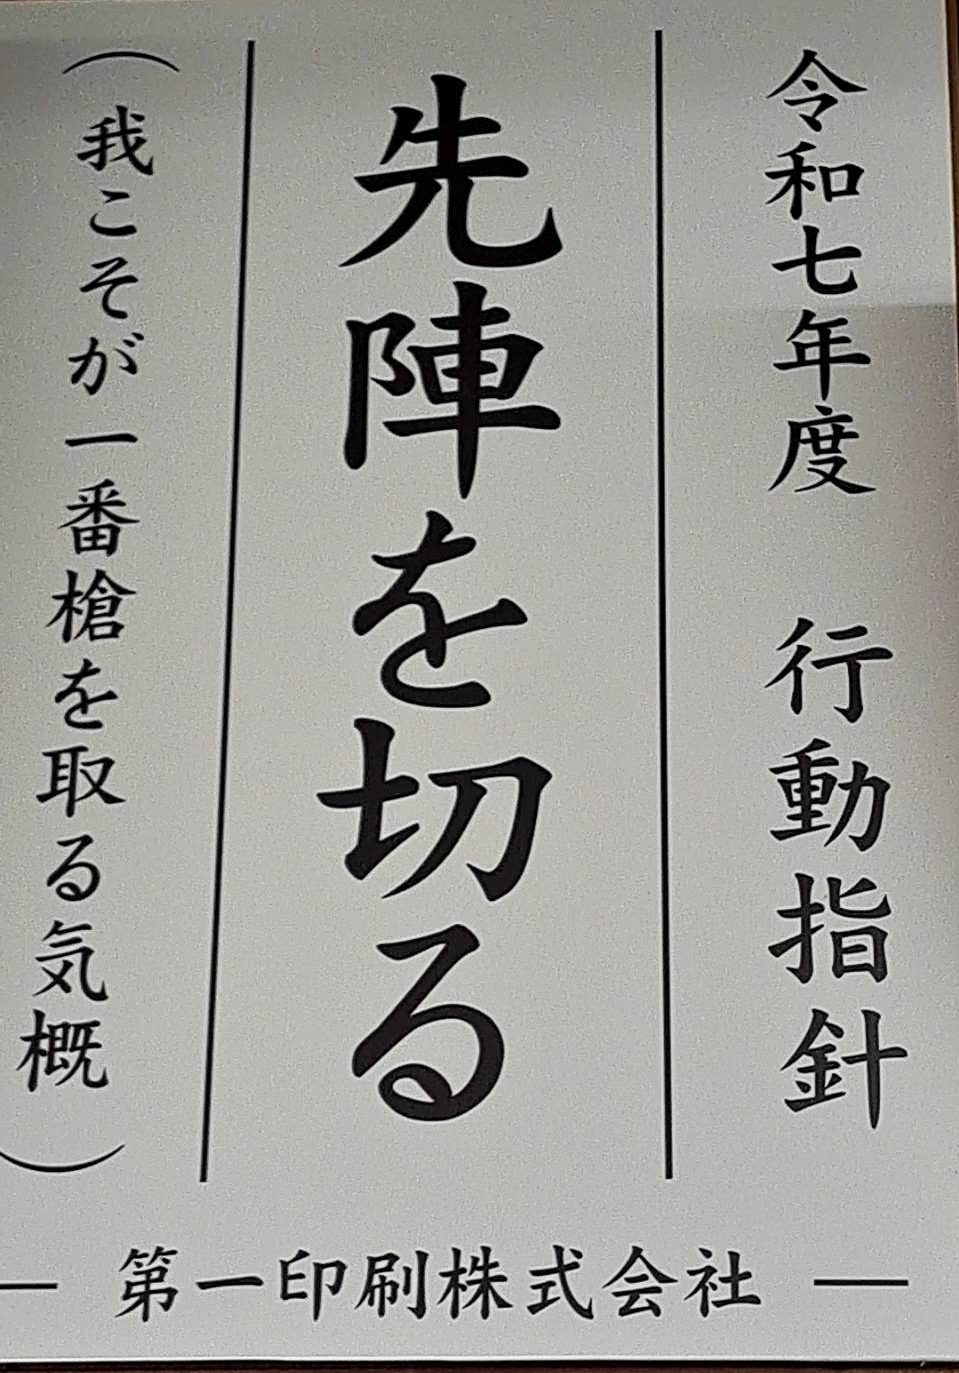 令和七年度　行動指針
先陣を切る
（我こそが一番槍を取る気概）
第一印刷株式会社